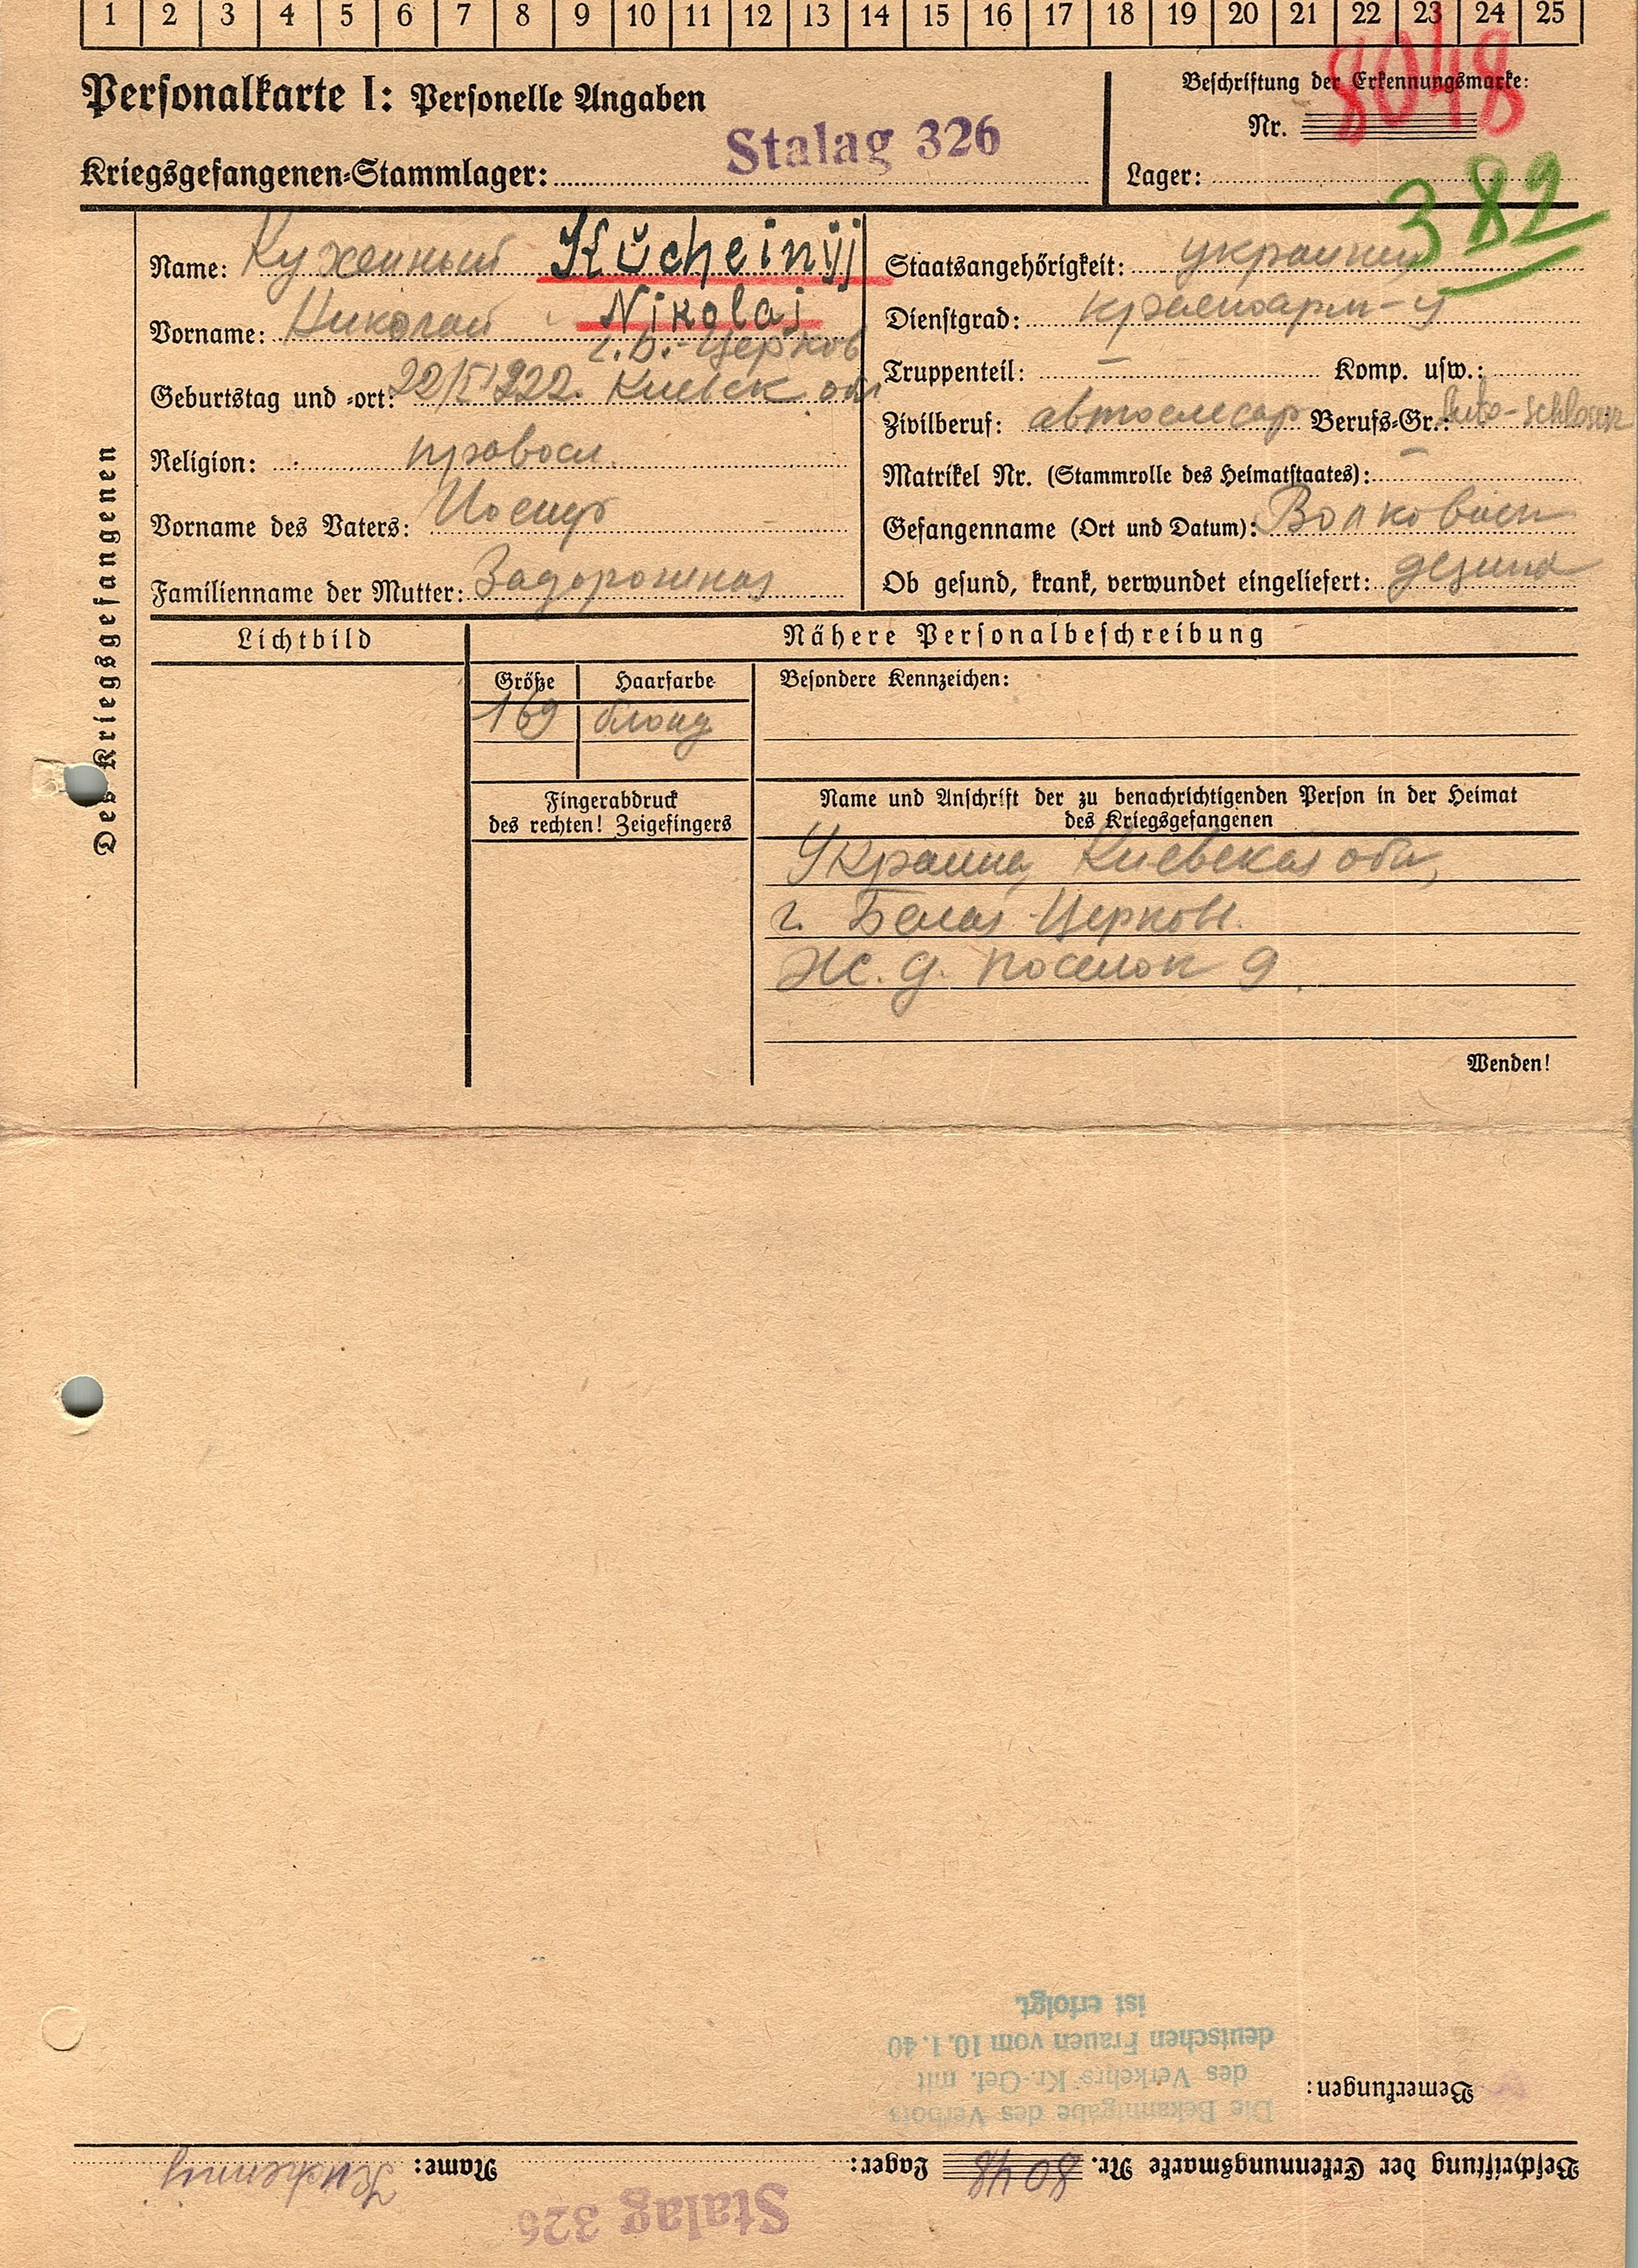 1 2 3 4 5 6 7 8 9 10 11 12 13 14 15 16 17 18 19 20 21 22 23 24 25
Personalkarte I: Personelle Angaben
Beschriftung der Erkennungsmarke:
Nr. 8048
Kriegsgefangenen-Stammlager: Stalag 326
Lager:
382
Des Kriegsgefangenen
Name: Кухенный Kŭcheinyj
Vorname: Николай Nikolaj
г. Б.-Церков
Geburtstag und -ort: Киевск обл
Religion: правосл.
Vorname des Vaters: Иосиф
Familienname der Mutter: Задорожная
Staatsangehörigkeit: украинец
Dienstgrad: красноарм-ц
Truppenteil: — Komp. usw.:
Zivilberuf: автослесар Berufs-Gr.: Auto-schlosser
Matrikel Nr. (Stammrolle des Heimatstaates): —
Gefangenname (Ort und Datum): Волковыск
Ob gesund, krank, verwundet eingeliefert: gesund
Lichtbild
Nähere Personalbeschreibung
Größe Haarfarbe Besondere Kennzeichen:
169 блонд
Fingerabdruck
des rechten! Zeigefingers
Name und Anschrift der zu benachrichtigenden Person in der Heimat
des Kriegsgefangenen
Украина, Киевская обл,
г. Белая-Церковь.
Ж. д. поселок 9
Wenden!
Stalag 326
Beschriftung der Erkennungsmarke Nr. 8048 Lager: Name: Kuchennij
Bemerkungen:
Die Bekanntgabe des Verbots
des Verkehrs Kr.-Gef. mit
deutschen Frauen vom 10.1.40
ist erfolgt.